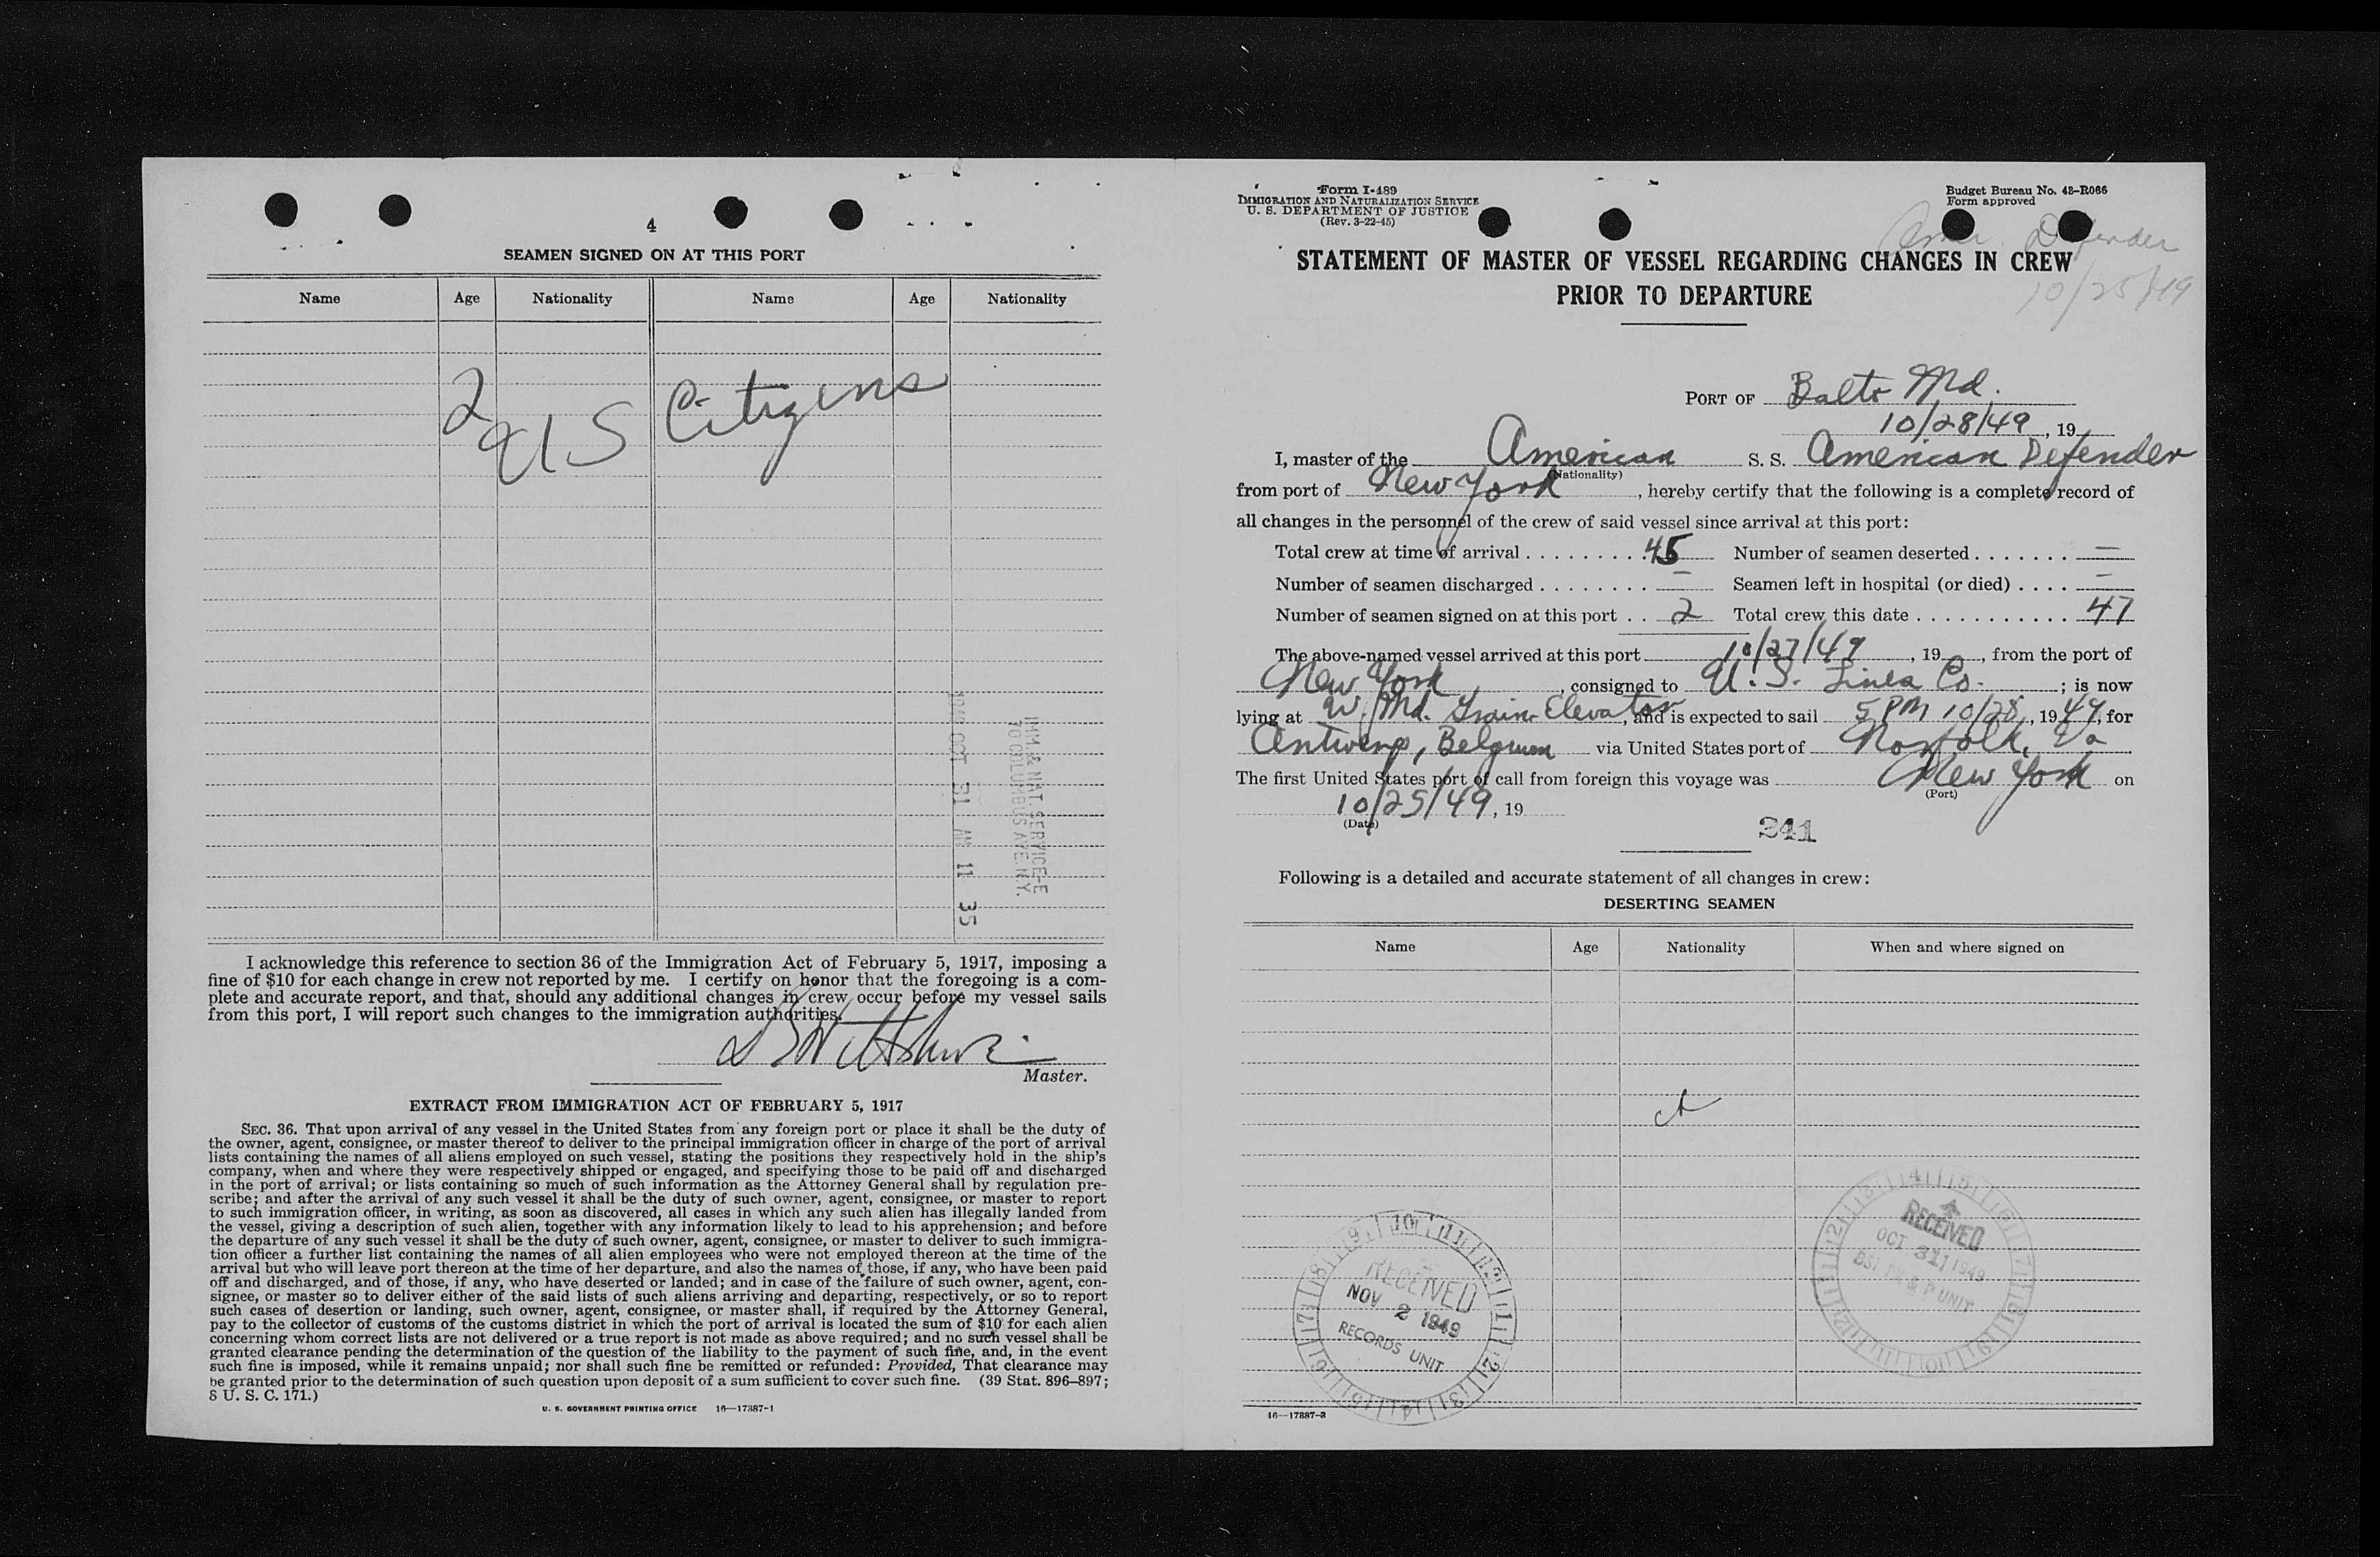 4
SEAMEN SIGNED ON AT THIS PORT
Name Age Nationality Name Age Nationality
2 US Citizens
1949 OCT 31 AM 11 35
IMM. & NAT. SERVICE-E
70 COLUMBUS AVE. N.Y.
I acknowledge this reference to section 36 of the Immigration Act of February 5, 1917, imposing a
fine of $10 for each change in crew not reported by me. I certify on honor that the foregoing is a com-
plete and accurate report, and that, should any additional changes in crew occur before my vessel sails
from this port, I will report such changes to the immigration authorities.
Master.
EXTRACT FROM IMMIGRATION ACT OF FEBRUARY 5, 1917
SEC. 36. That upon arrival of any vessel in the United States from any foreign port or place it shall be the duty of
the owner, agent, consignee, or master thereof to deliver to the principal immigration officer in charge of the port of arrival
lists containing the names of all aliens employed on such vessel, stating the positions they respectively hold in the ship's
company, when and where they were respectively shipped or engaged, and specifying those to be paid off and discharged
in the port of arrival; or lists containing so much of such information as the Attorney General shall by regulation pre-
scribe; and after the arrival of any such vessel it shall be the duty of such owner, agent, consignee, or master to report
to such immigration officer, in writing, as soon as discovered, all cases in which any such alien has illegally landed from
the vessel, giving a description of such alien, together with any information likely to lead to his apprehension; and before
the departure of any such vessel it shall be the duty of such owner, agent, consignee, or master to deliver to such immigra-
tion officer a further list containing the names of all alien employees who were not employed thereon at the time of the
arrival but who will leave port thereon at the time of her departure, and also the names of those, if any, who have been paid
off and discharged, and of those, if any, who have deserted or landed; and in case of the failure of such owner, agent, con-
signee, or master so to deliver either of the said lists of such aliens arriving and departing, respectively, or so to report
such cases of desertion or landing, such owner, agent, consignee, or master shall, if required by the Attorney General,
pay to the collector of customs of the customs district in which the port of arrival is located the sum of $10 for each alien
concerning whom correct lists are not delivered or a true report is not made as above required; and no such vessel shall be
granted clearance pending the determination of the question of the liability to the payment of such fine, and, in the event
such fine is imposed, while it remains unpaid; nor shall such fine be remitted or refunded: Provided, That clearance may
be granted prior to the determination of such question upon deposit of a sum sufficient to cover such fine. (39 Stat. 896–897;
8 U. S. C. 171.)
U. S. GOVERNMENT PRINTING OFFICE 16—17387-1
Form I-489
IMMIGRATION AND NATURALIZATION SERVICE
U. S. DEPARTMENT OF JUSTICE
(Rev. 3-22-45)
Budget Bureau No. 43–R066
Form approved
Amer. Defender
10/25/49
STATEMENT OF MASTER OF VESSEL REGARDING CHANGES IN CREW
PRIOR TO DEPARTURE
PORT OF Balto Md.
10/28/49, 19
I, master of the American S. S. American Defender
(Nationality)
from port of New York, hereby certify that the following is a complete record of
all changes in the personnel of the crew of said vessel since arrival at this port:
Total crew at time of arrival . . . . . . . . 45 Number of seamen deserted . . . . . . . —
Number of seamen discharged . . . . . . . . — Seamen left in hospital (or died) . . . . —
Number of seamen signed on at this port . . 2 Total crew this date . . . . . . . . . . . 47
The above-named vessel arrived at this port 10/27/49, 19, from the port of
New York, consigned to U. S. Lines Co.; is now
lying at W. Md. Grain Elevator, and is expected to sail 5 PM 10/28, 1949, for
Antwerp, Belgium via United States port of Norfolk, Va.
The first United States port of call from foreign this voyage was New York on
(Port)
10/25/49, 19
(Date)
241
Following is a detailed and accurate statement of all changes in crew:
DESERTING SEAMEN
Name Age Nationality When and where signed on
RECEIVED
OCT 31 1949
RECEIVED
NOV 2 1949
RECORDS UNIT
16—17387-3